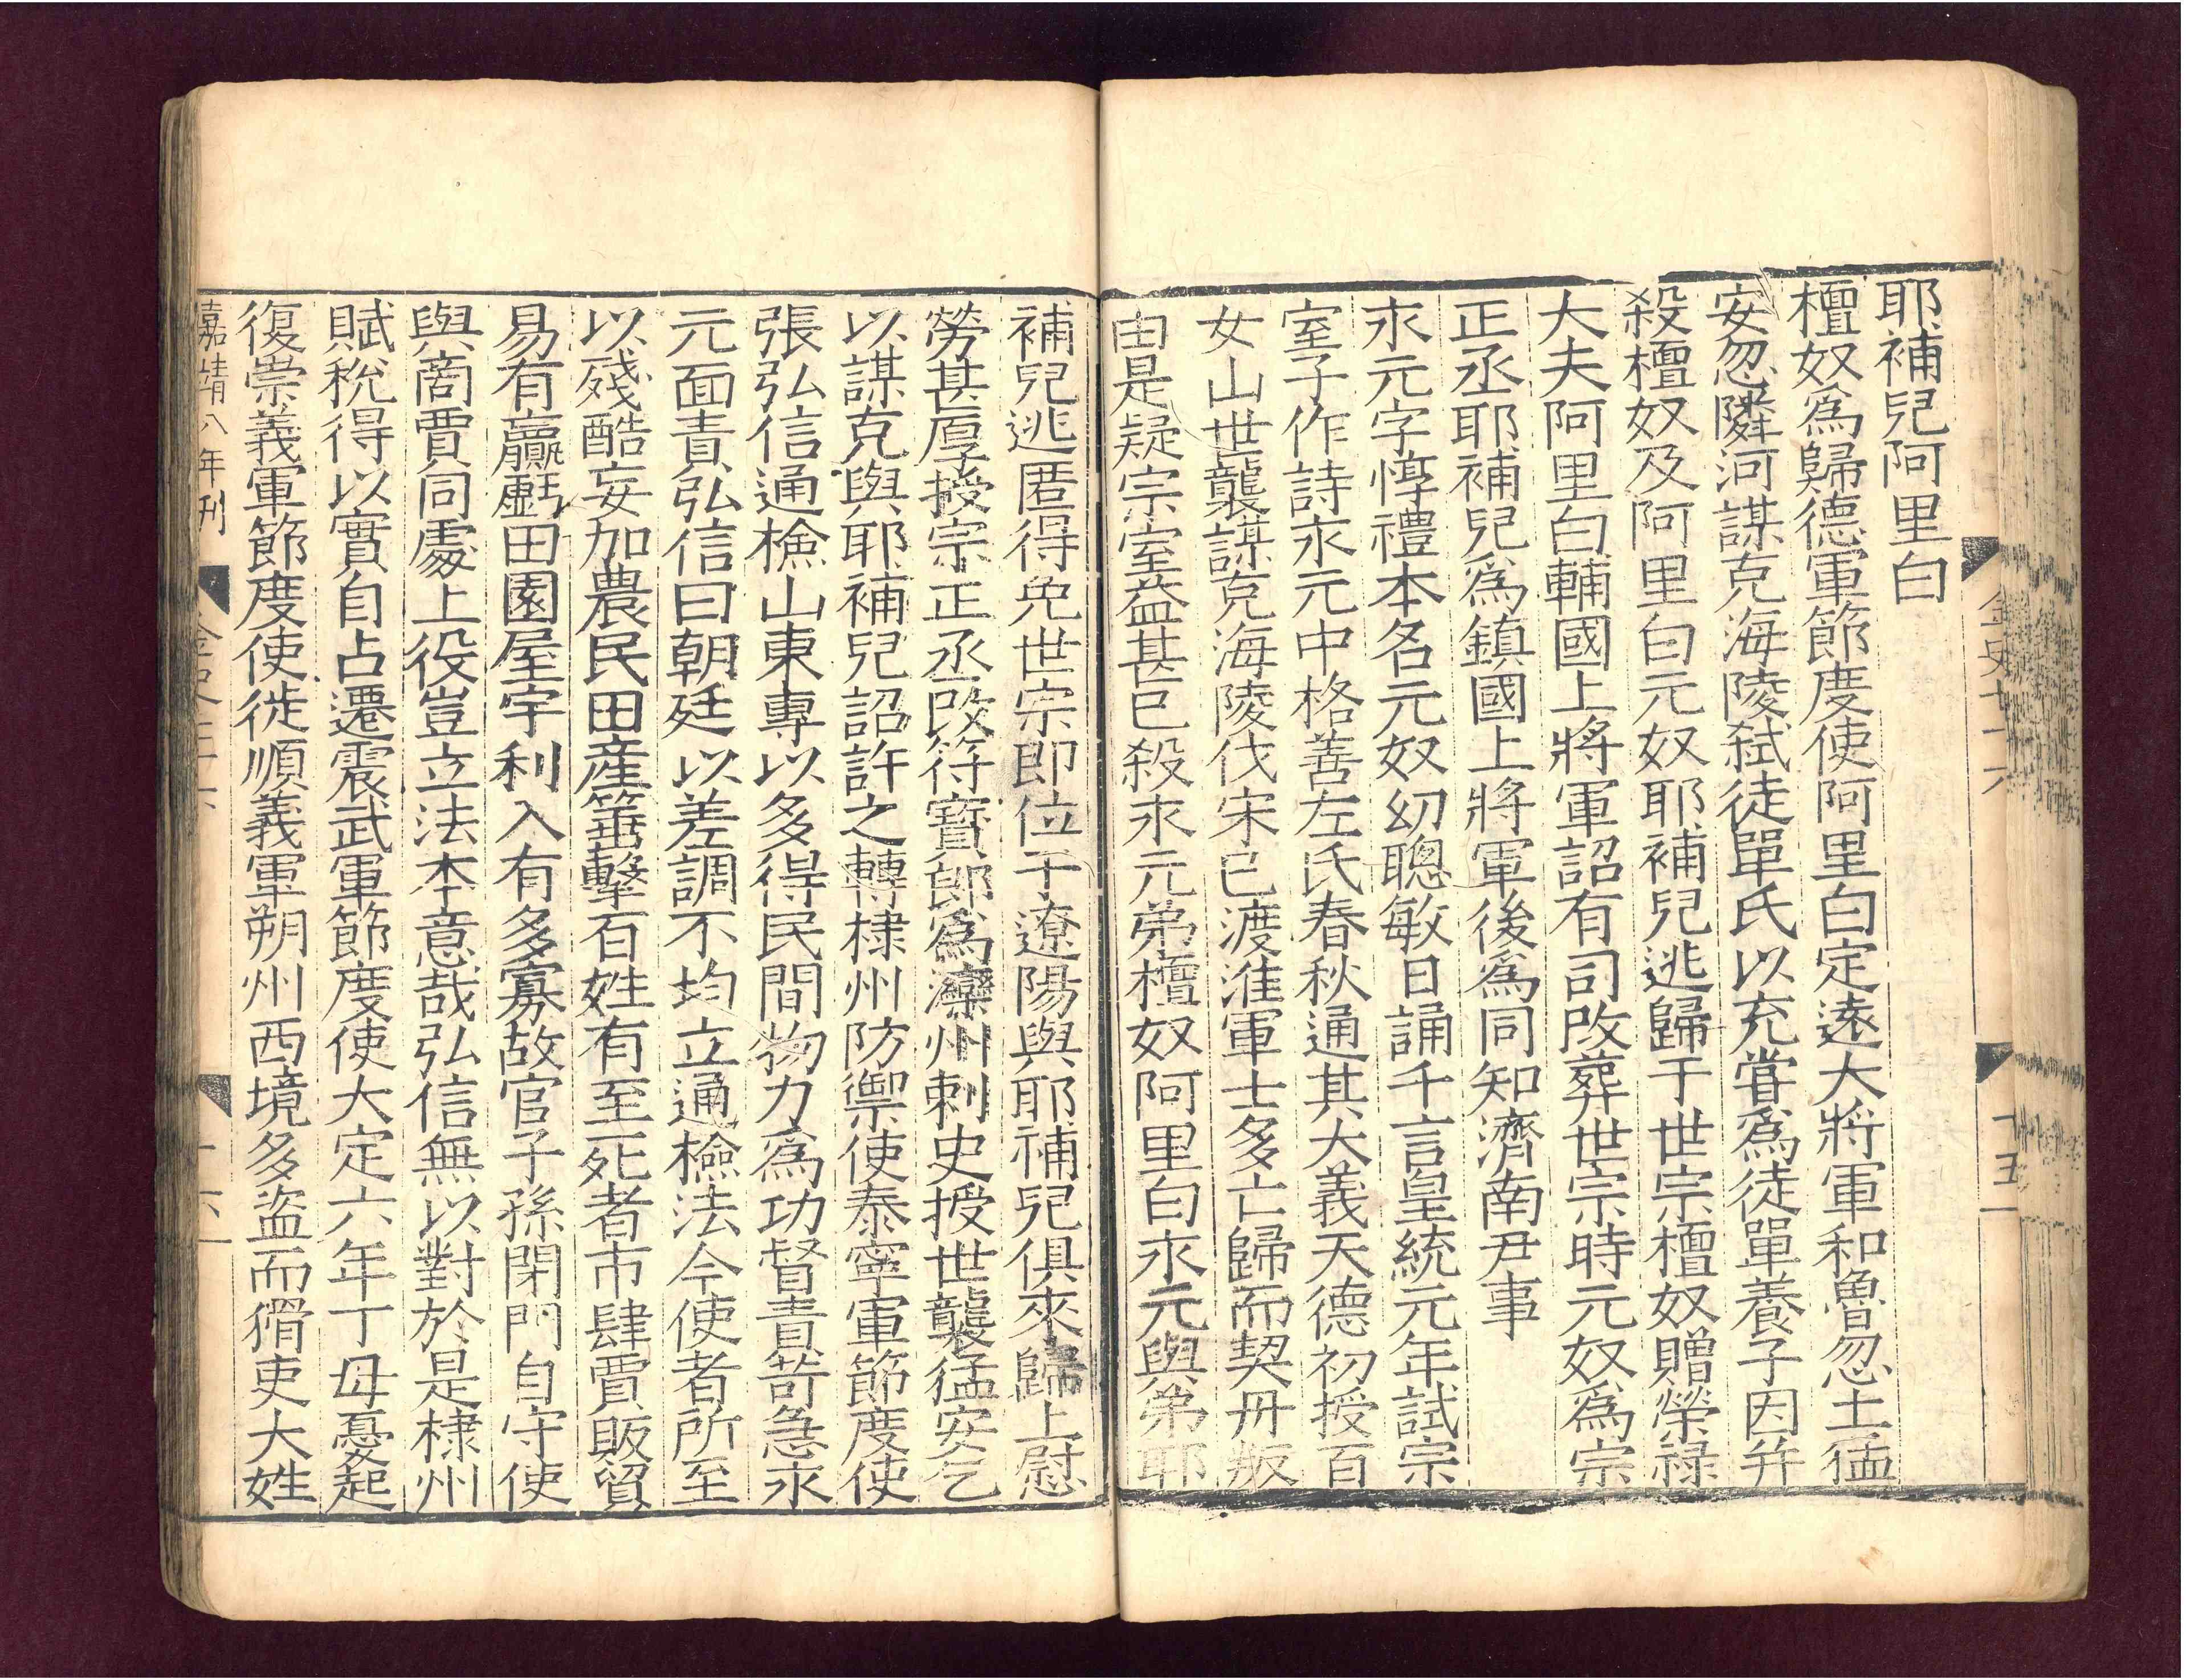 耶補兒阿里白
檀奴為歸德軍節度使阿里白定遠大將軍和魯忽土猛
安忽隣河謀克海陵弑徒單氏以充嘗為徒單養子因并
殺檀奴及阿里白元奴耶補兒逃歸于世宗檀奴贈榮祿
大夫阿里白輔國上將軍詔有司改葬世宗時元奴為宗
正丞耶補兒為鎮國上將軍後為同知濟南尹事
永元字惇禮本名元奴幼聰敏日誦千言皇統元年試宗
室子作詩永元中格善左氏春秋通其大義天德初授百
女山世襲謀克海陵伐宋已渡淮軍士多亡歸而契丹叛
由是疑宗室益甚已殺永元弟檀奴阿里白永元與弟耶
補兒逃匿得免世宗即位于遼陽與耶補兒俱來歸上慰
勞甚厚授宗正丞改符寶郎為灤州刺史授世襲猛安乞
以謀克與耶補兒詔許之轉棣州防禦使泰寧軍節度使
張弘信通檢山東專以多得民間物力為功督責苛急永
元面責弘信曰朝廷以差調不均立通檢法今使者所至
以殘酷妄加農民田產箠擊百姓有至死者市肆賈販貿
易有贏虧田園屋宇利入有多寡故官子孫閉門自守使
與商賈同處上役豈立法本意哉弘信無以對於是棣州
賦稅得以實自占遷震武軍節度使大定六年丁母憂起
復崇義軍節度使徙順義軍朔州西境多盜而猾吏大姓
嘉靖八年刊